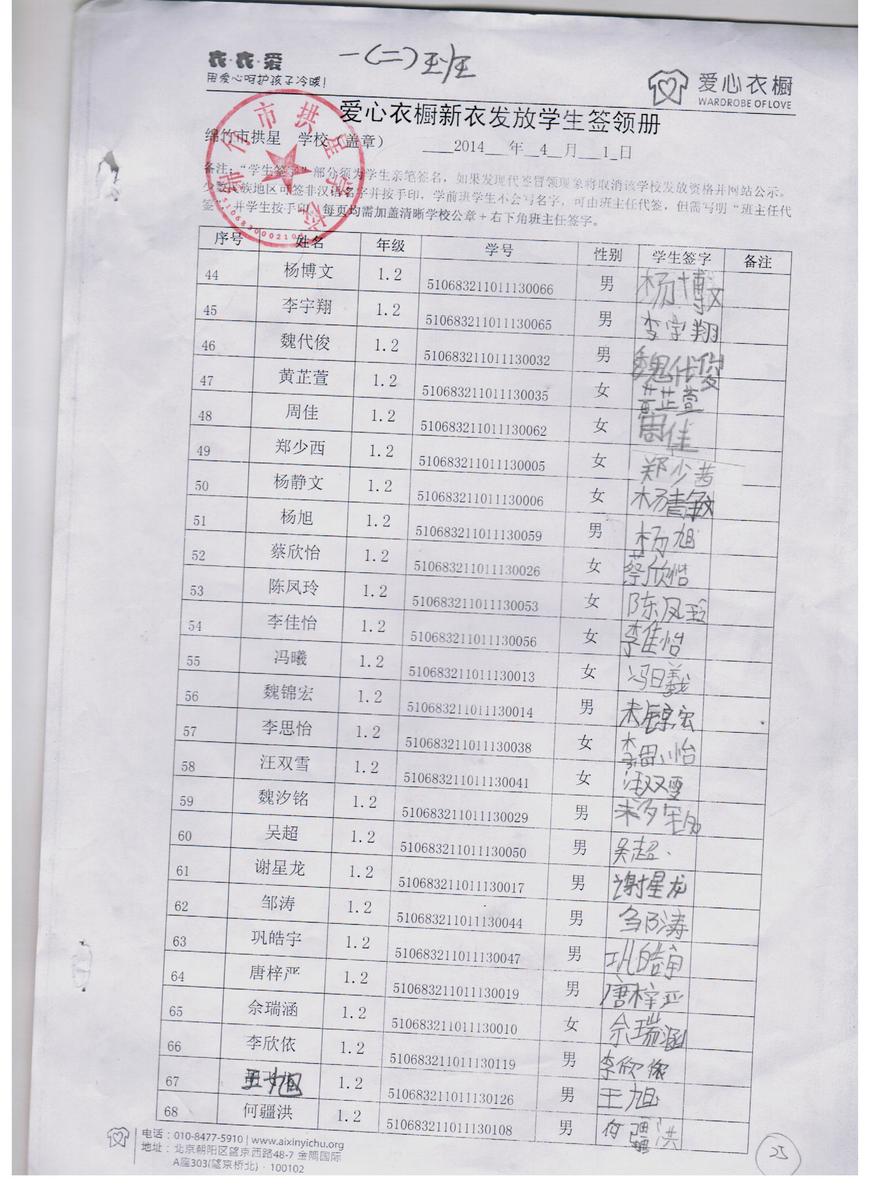 衣·衣·爱
用爱心呵护孩子冷暖！
一(二)班
爱心衣橱
WARDROBE OF LOVE
爱心衣橱新衣发放学生签领册
绵竹市拱星 学校（盖章） 2014 年 4 月 1 日
备注："学生签字"部分须为学生亲笔签名，如果发现代签冒领现象将取消该学校发放资格并网站公示。
少数民族地区可签非汉语名字并按手印，学前班学生不会写名字，可由班主任代签，但需写明"班主任代
签"，并学生按手印。每页均需加盖清晰学校公章+右下角班主任签字。
序号 姓名 年级 学号 性别 学生签字 备注
44 杨博文 1.2 510683211011130066 男 杨博文
45 李宇翔 1.2 510683211011130065 男 李宇翔
46 魏代俊 1.2 510683211011130032 男 魏代俊
47 黄芷萱 1.2 510683211011130035 女 黄芷萱
48 周佳 1.2 510683211011130062 女 周佳
49 郑少西 1.2 510683211011130005 女 郑少茜
50 杨静文 1.2 510683211011130006 女
51 杨旭 1.2 510683211011130059 男 杨旭
52 蔡欣怡 1.2 510683211011130026 女 蔡欣怡
53 陈凤玲 1.2 510683211011130053 女 陈凤玲
54 李佳怡 1.2 510683211011130056 女 李佳怡
55 冯曦 1.2 510683211011130013 女 冯曦
56 魏锦宏 1.2 510683211011130014 男
57 李思怡 1.2 510683211011130038 女 李思怡
58 汪双雪 1.2 510683211011130041 女 汪双雪
59 魏汐铭 1.2 510683211011130029 男
60 吴超 1.2 510683211011130050 男 吴超
61 谢星龙 1.2 510683211011130017 男 谢星龙
62 邹涛 1.2 510683211011130044 男 邹涛
63 巩皓宇 1.2 510683211011130047 男
64 唐梓严 1.2 510683211011130019 男 唐梓严
65 佘瑞涵 1.2 510683211011130010 女 佘瑞涵
66 李欣依 1.2 510683211011130119 男 李欣依
67 王旭 1.2 510683211011130126 男 王旭
68 何疆洪 1.2 510683211011130108 男 何疆洪
电话：010-8477-5910 | www.aixinyichu.org
地址：北京朝阳区望京西路48-7 金隅国际
A座303(望京桥北)·100102
25